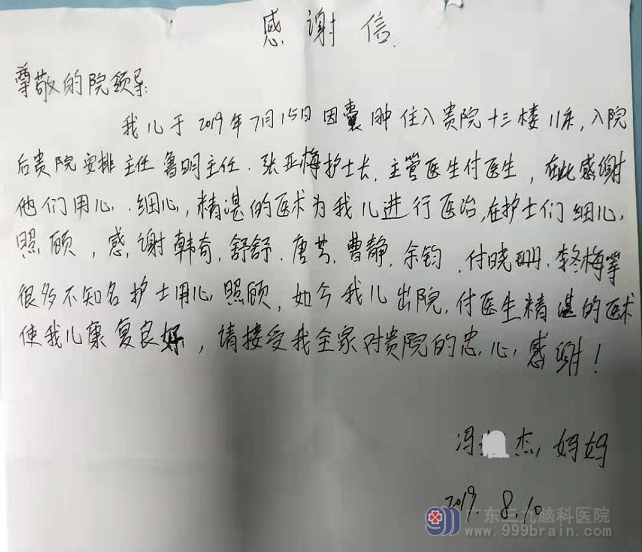 感谢信
尊敬的院领导:
我儿于2019年7月15日因囊肿住入贵院十三楼11床,入院
后贵院安排主任鲁明主任.张亚梅护士长.主管医生付医生,在此感谢
他们用心.细心,精湛的医术为我儿进行医治,在护士们细心
照顾,感谢韩奇.舒舒.唐芸.曹静.余钧.付晓珊.李冬梅等
很多不知名护士用心照顾,如今我儿出院.付医生精湛的医术
使我儿康复良好,请接受我全家对贵院的忠心感谢!
冯 杰,妈妈
2019.8.10
广东三九脑科医院
www.999brain.com